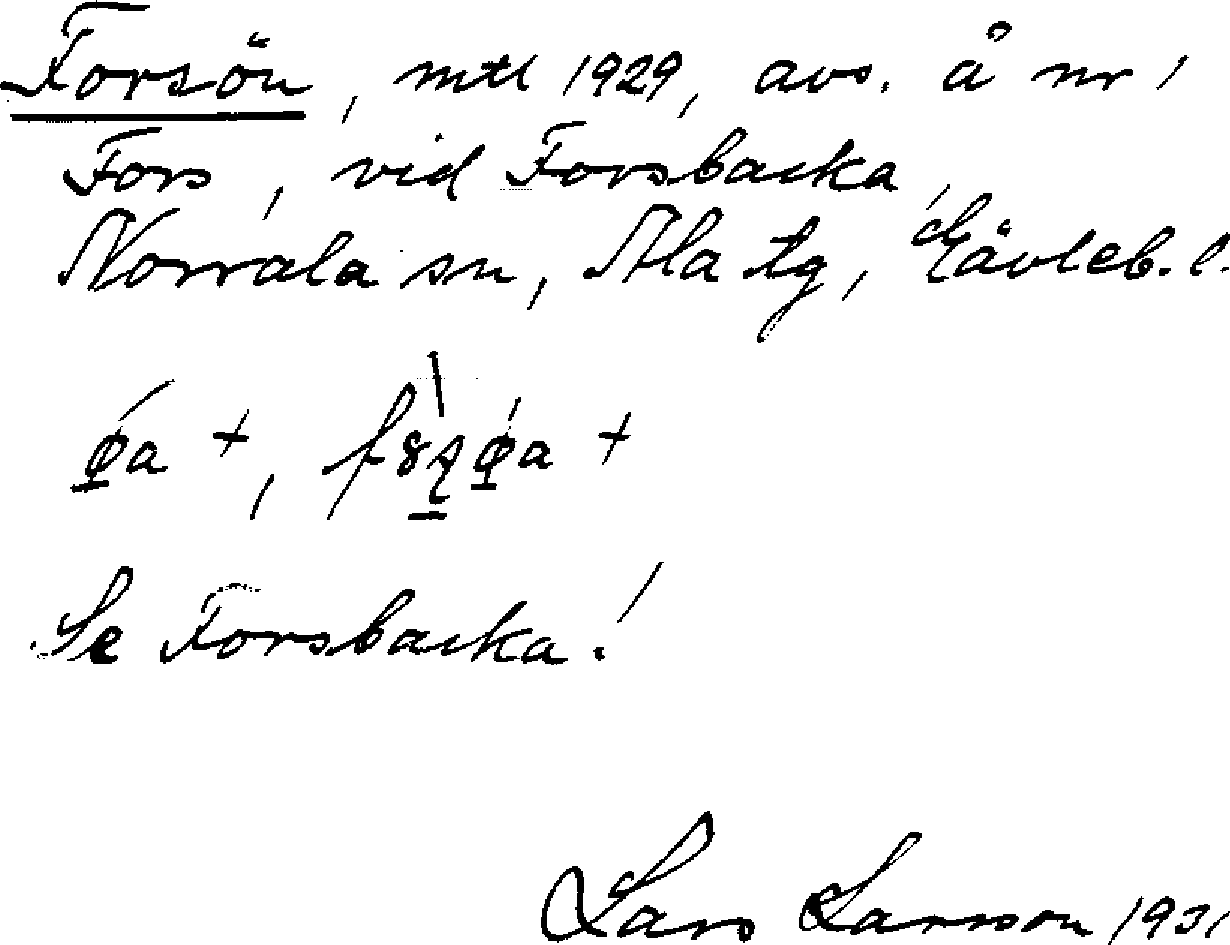 Forsön, mtl 1929, avs. å nr 1
Fors, vid Forsbacka,
Norrala sn, Ala tg, Gävleb. l.
Se Forsbacka!
Lars Larsson 1931